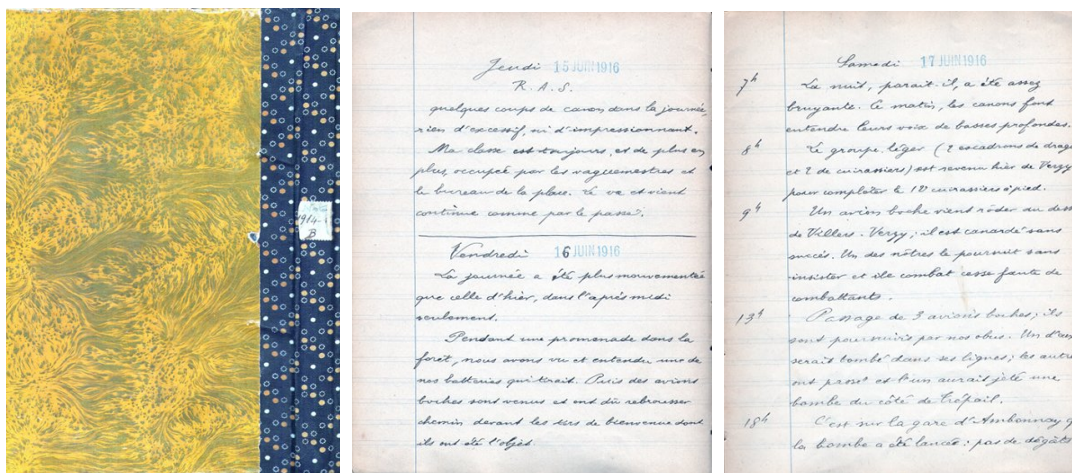 1914-
B
Jeudi 15 JUIN 1916
R. A. S.
quelques coups de canon dans la journée,
rien d'excessif, ni d'impressionnant.
Ma classe est toujours, et de plus en
plus, occupée par les vaguemestres et
le bureau de la place. Le va et vient
continue comme par le passé.
Vendredi 16 JUIN 1916
La journée a été plus mouvementée
que celle d'hier, dans l'après midi
seulement.
Pendant une promenade dans la
forêt, nous avons vu et entendu une de
nos batteries qui tirait. Puis des avions
boches sont venus et ont dû rebrousser
chemin devant les tirs de bienvenue dont
ils ont été l'objet.
Samedi 17 JUIN 1916
7h La nuit, parait-il, a été assez
bruyante. Ce matin, les canons font
entendre leurs voix de basses profondes.
8h Le groupe léger (2 escadrons de drago
et 2 de cuirassiers) est revenu hier de Verzy
pour completer le 12 cuirassiers à pied.
9h Un avion boche vient rôder au dess
de Villers-Verzy; il est canardé sans
succès. Un des nôtres le poursuit sans
insister et le combat cesse faute de
combattants.
13h Passage de 3 avions boches; ils
sont poursuivis par nos obus. Un d'eux
serait tombé dans ses lignes; les autres
ont passé et l'un aurait jeté une
bombe du côté de Trépail.
18h C'est sur la gare d'Ambonnay q
la bombe a été lancée: pas de dégâts